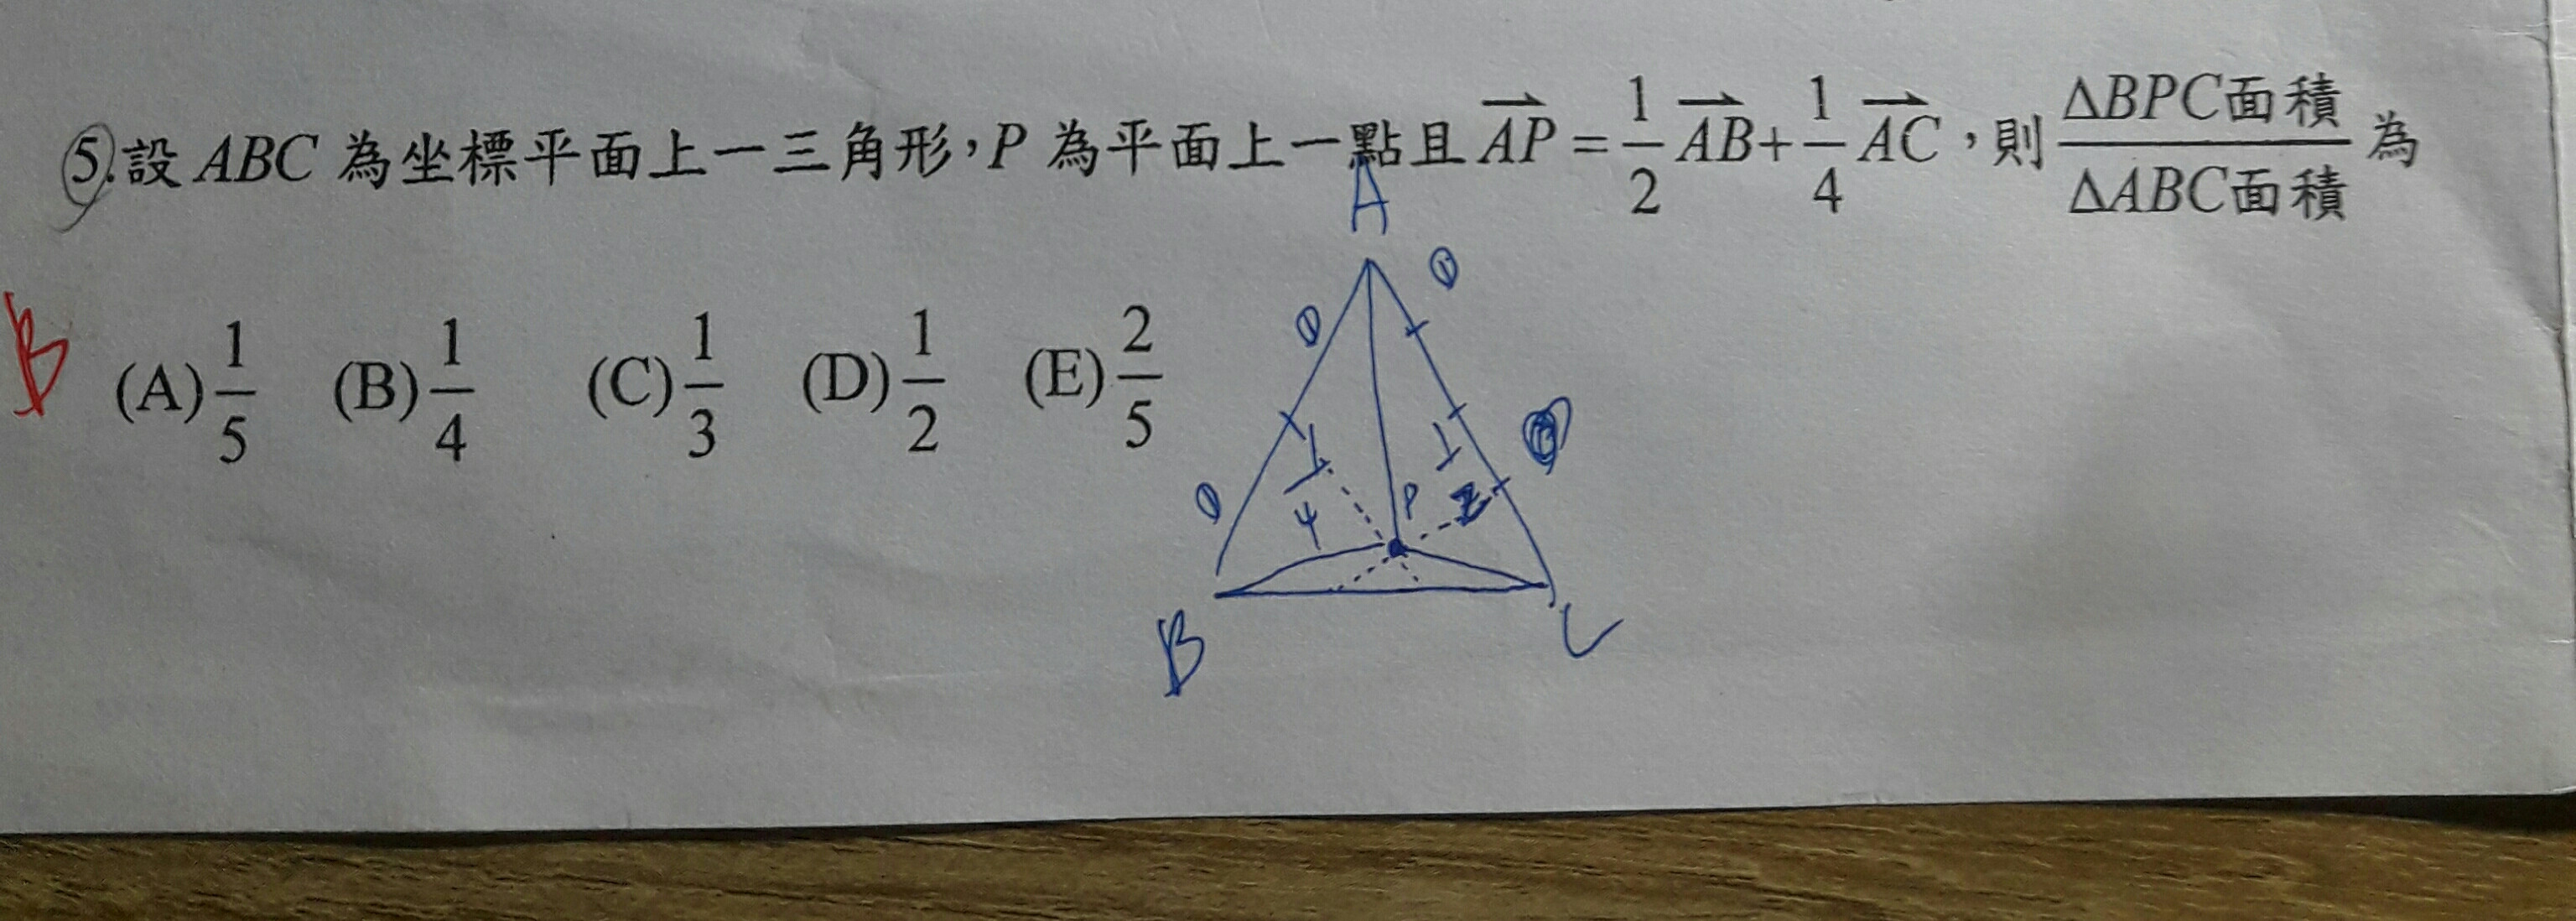 5.設ABC為坐標平面上一三角形，P為平面上一點且$\overrightarrow{AP}=\frac{1}{2}\overrightarrow{AB}+\frac{1}{4}\overrightarrow{AC}$，則$\frac{\Delta BPC面積}{\Delta ABC面積}$為
B (A)$\frac{1}{5}$ (B)$\frac{1}{4}$ (C)$\frac{1}{3}$ (D)$\frac{1}{2}$ (E)$\frac{2}{5}$
A
①
①
①
$\frac{1}{4}$ P $\frac{1}{2}$
B C